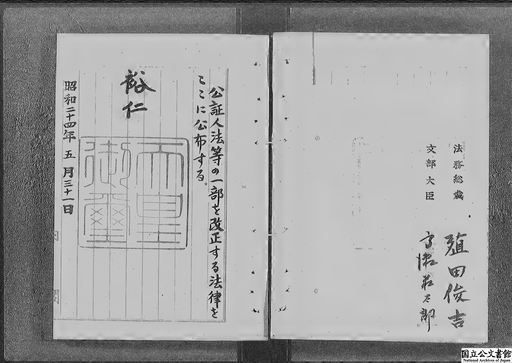 法務総裁
殖田俊吉
文部大臣
高瀬荘太郎
公証人法等の一部を改正する法律を
ここに公布する。
裕仁
天皇
御璽
昭和二十四年五月三十一日
国立公文書館
National Archives of Japan